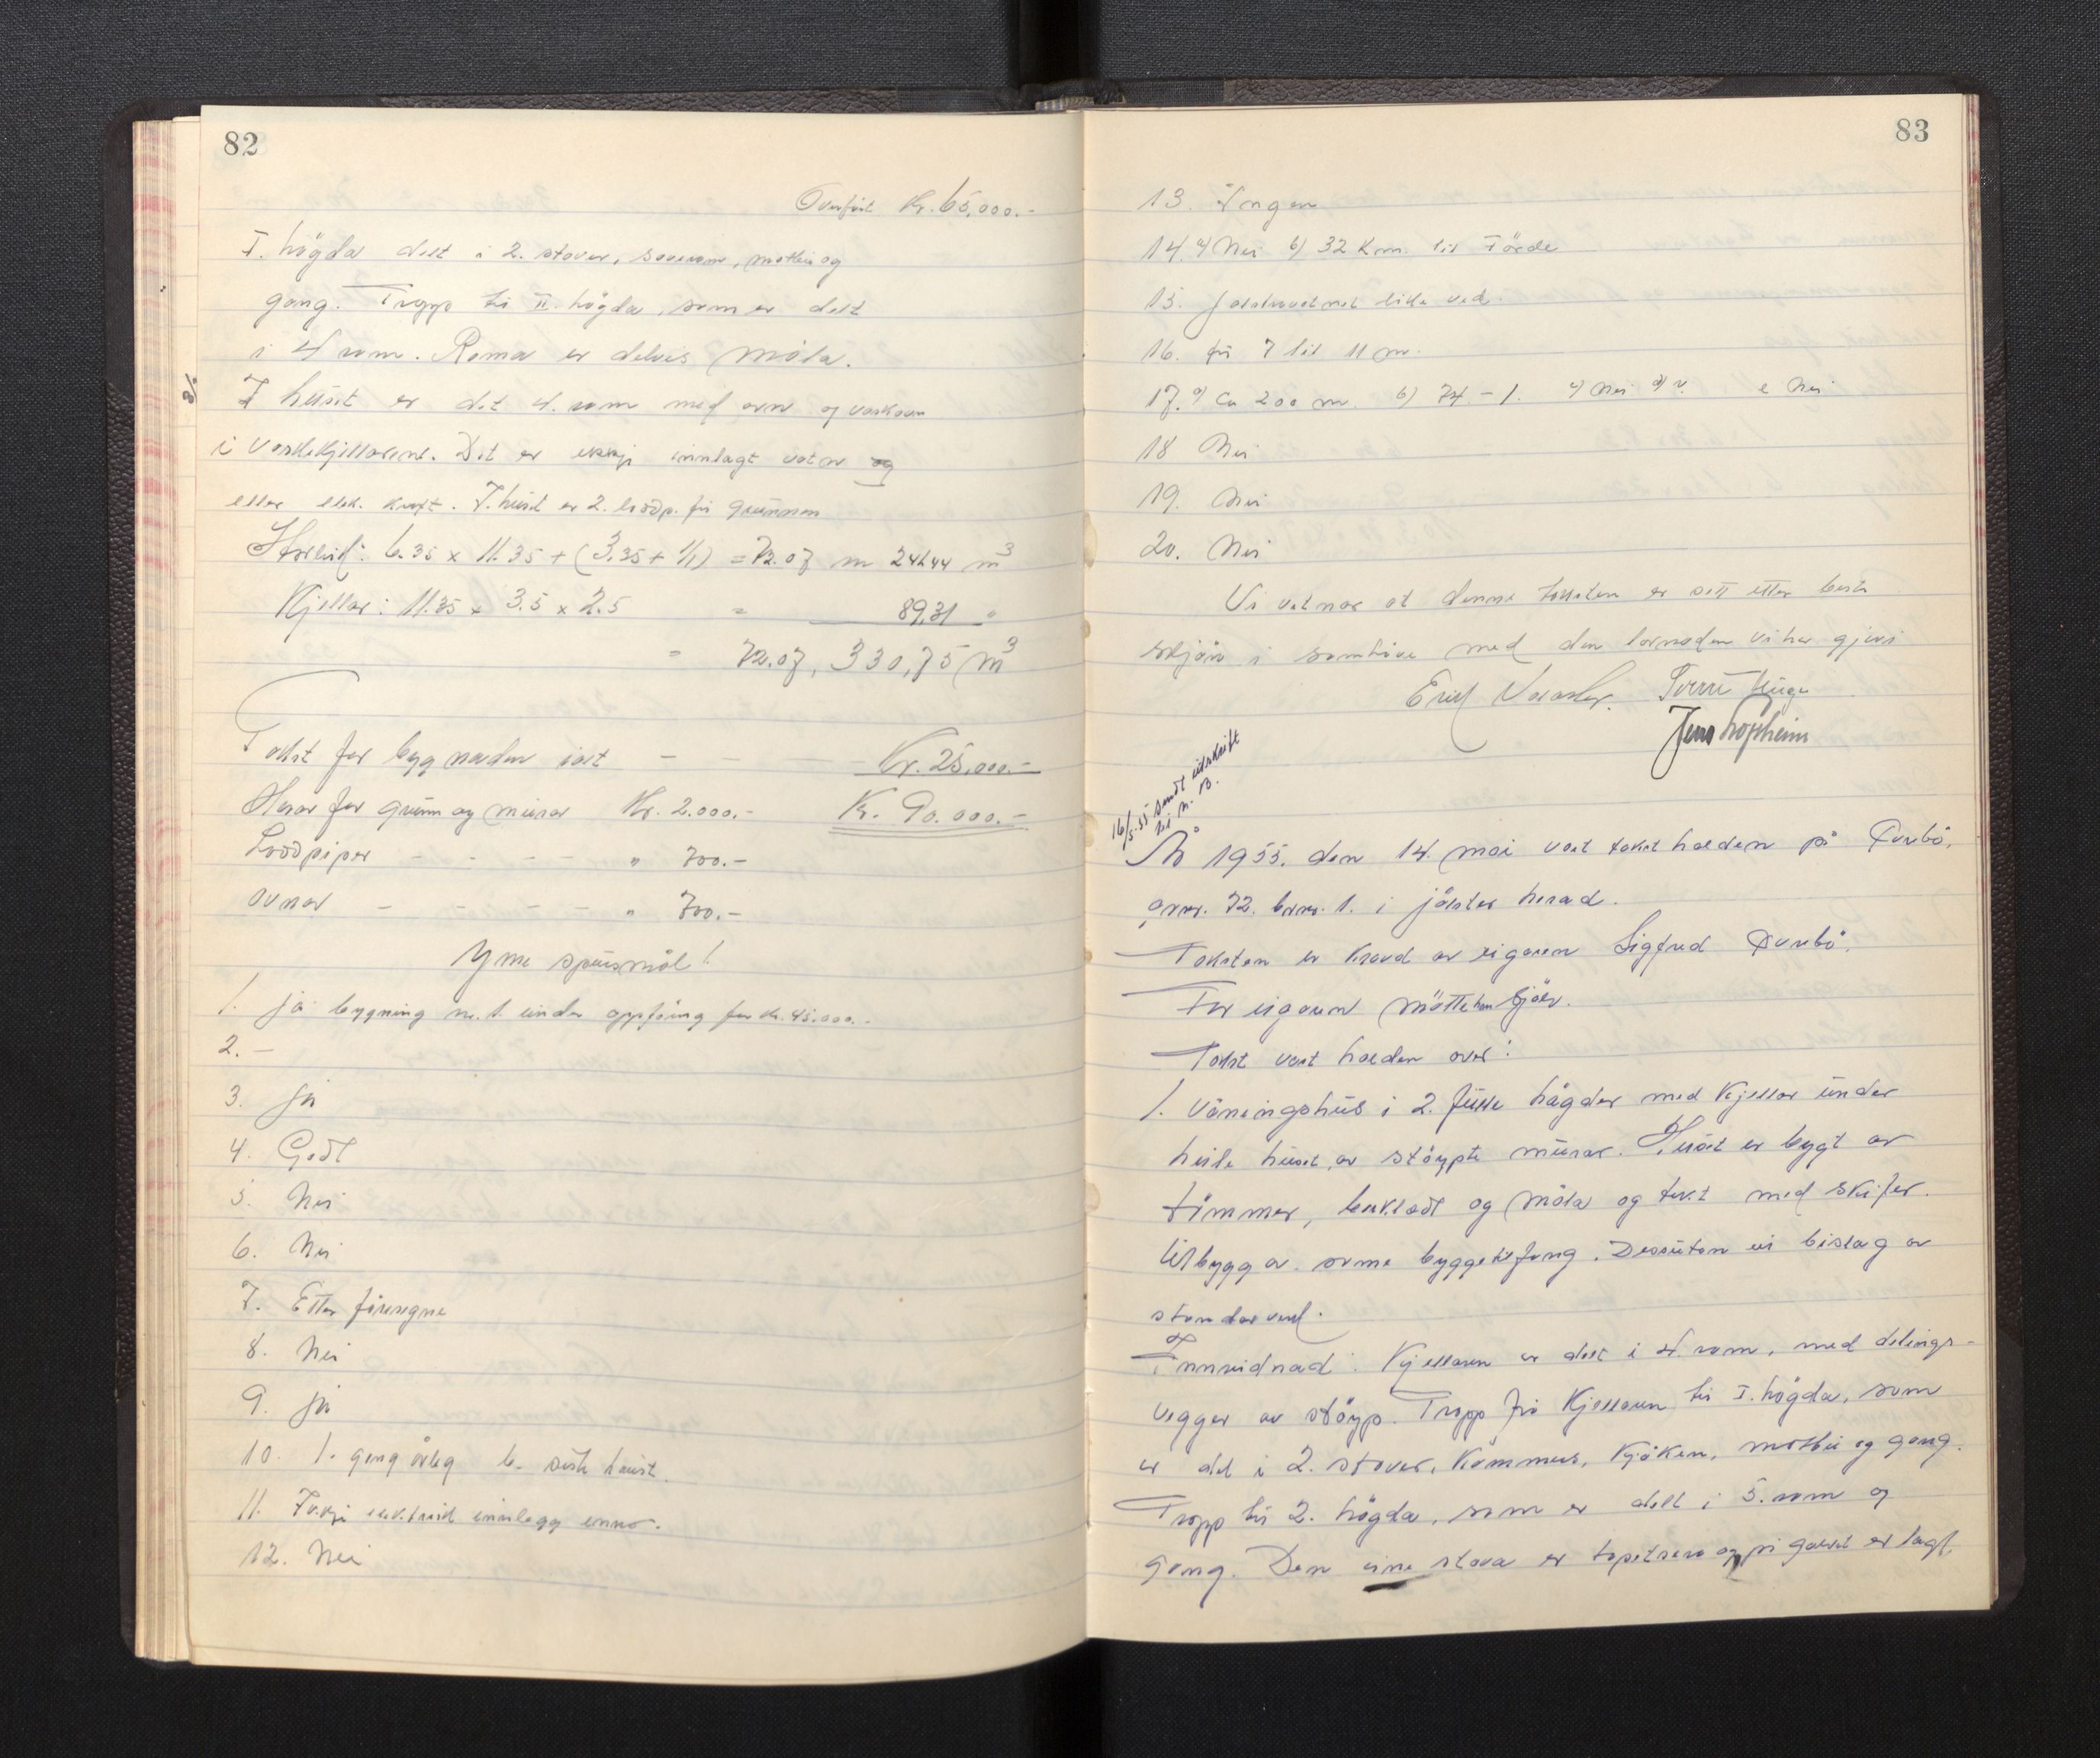 82
Overført Kr. 65,000.-
I. högda delt i 2. stover, soverom, matbu og
gang. Tropp til II. högda, som er delt
i 4 rom. Roma er delvis måla.
I huset er det 4. rom med omn og vaskeomn
i vaskekjellarene. Det er ikkje innlagt vatn og
eller elek. kraft. I huset er 2. loddp. frå grunnen
Storleik: 6.35 x 11.35 + (3,35 + 1/1) = 72.07 m 241,44 m3
Kjellar: 11.35 x 3.5 x 2.5 = 89,31 "
= 72.07, 330,75 m3
Takst for bygnaden ialt - - Kr. 25,000.-
Herav for grunn og murar Kr. 2.000.- Kr. 90.000.-
Loddpiper - - - - " 700.-
ovnar - - - - - " 700.-
Ymse spursmål!
1. ja bygning nr. 1. under oppföring for kr. 45.000.-
2. -
3. ja
4. Godt
5. Nei
6. Nei
7. Etter föresegne
8. Nei
9. ja
10. 1. gong årleg b. siste haust.
11. Ikkje elektrisk innlegg enno.
12. Nei
83
13. Ingen
14. a) Nei b) 32 km. til Förde
15. Jølstravatnet like ved.
16. frå 7 til 11 m.
17. a) Ca 200 m. b) 74 - 1. c) Nei d) v. e Nei
18 Nei
19. Nei
20. Nei
Vi vitnar at denne taksten er sett etter beste
skjön i samhöve med den lovnaden vi har gjevi
Jens Løseth
16/5-55 sendt utskrift
til N. B.
År 1955. den 14. mai vart takst halden på
gnr. 72. bnr. 1. i jölster herad.
Taksten er kravd av eigaren Sigfred
For eigaren mötte han sjölv.
Takst vart halden over:
1. Våningshus i 2. fulle högder med kjellar under
heile huset, av stöypte murar. Huset er bygt av
tömmer, bukledt og måla og tekt med skifer.
tilbygg av same byggetilfang. Dessutan eit bislag av
standarverk.
Innreidnad: Kjellaren er delt i 4. rom, med delings-
vegger av stöyp. Tropp frå kjellaren til I. högda, som
er delt i 2. stover, kammers, kjöken, matbu og gang.
Tropp til 2. högda, som er delt i 5. rom og
gang. Den eine stova er tapetsera og på golvet er lagt